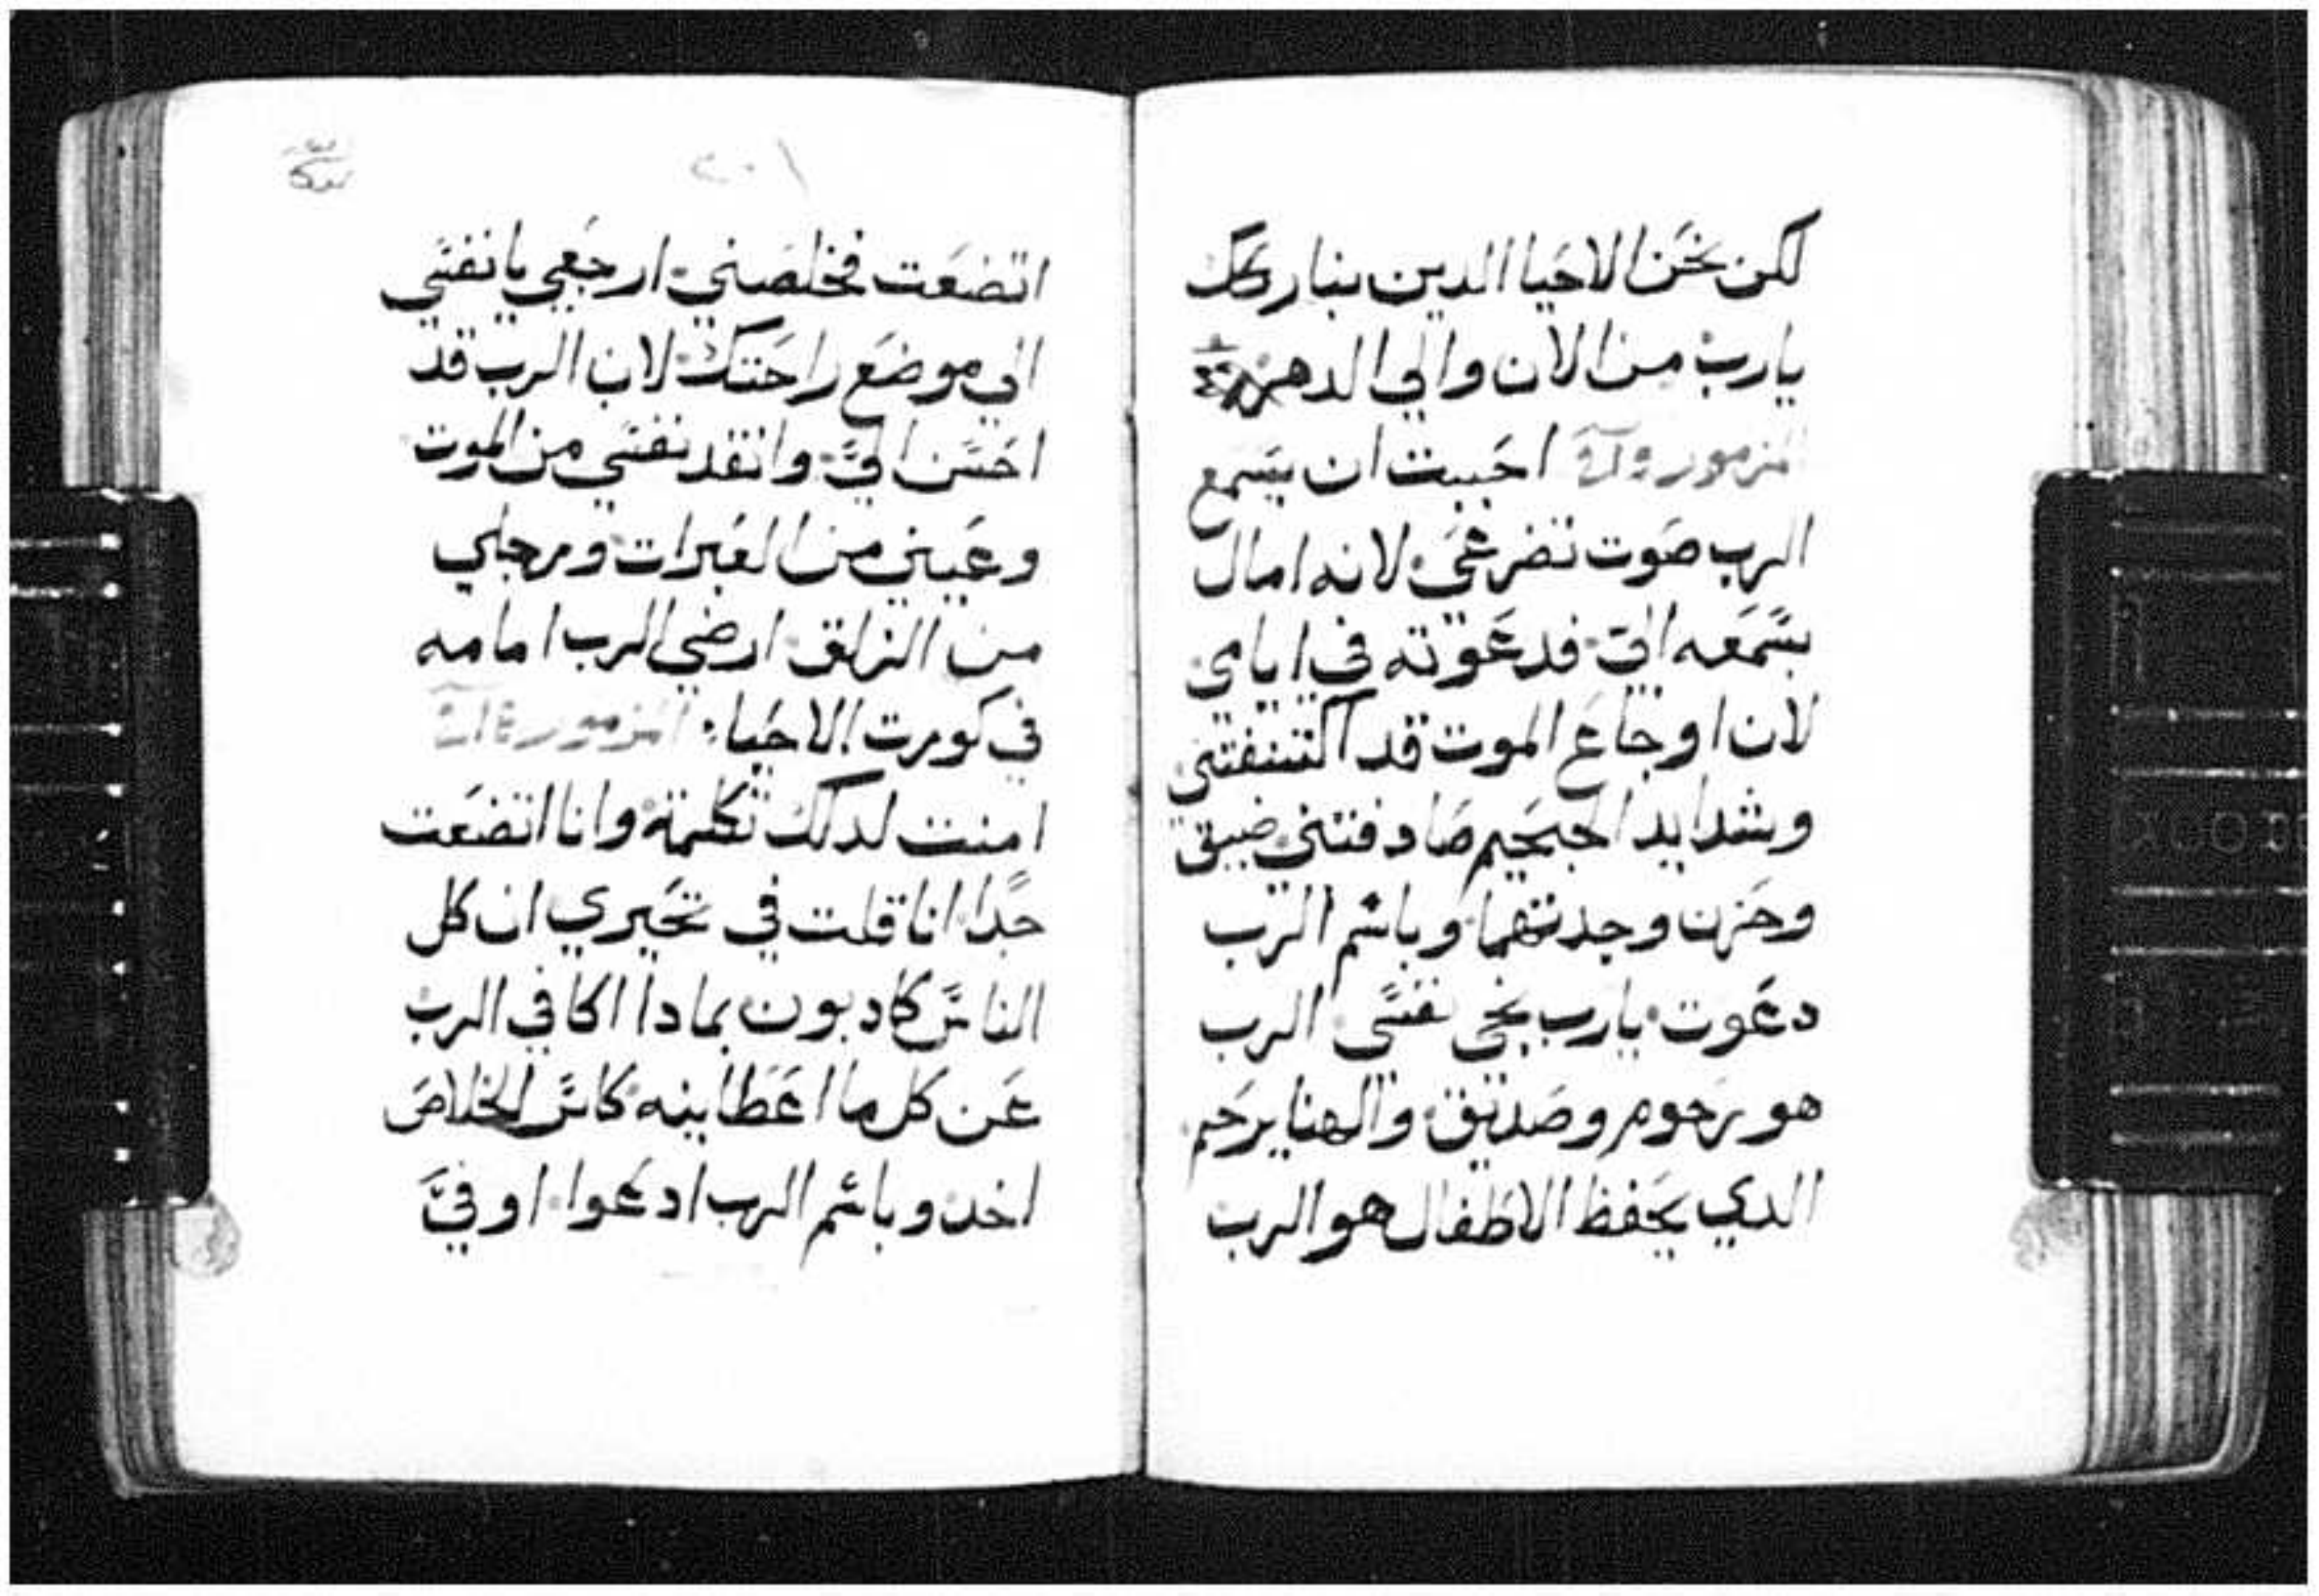 لكن نحن الاحيا الدين نباركك
يارب من الان والي الدهر
المزمور احببت ان يسمع
الرب صوت تضرعي لانه امال
بسمعه الي فدعوته في ايامي
لان اوجاع الموت قد اكتنفتني
وشدايد الجحيم صادفتني ضيق
وحزن وجدتهما وباسم الرب
دعوت يارب نجي نفسي الرب
هو رحوم وصديق والهنا يرحم
الدي يحفظ الاطفال هو الرب
٢٠١
اتضعت فخلصني ارجعي يا نفسي
الي موضع راحتك لان الرب قد
احسن الي وانقد نفسي من الموت
وعيني من العبرات ورجلي
من الزلق ارضي الرب امامه
في كورت الاحياء المزمور
امنت لدلك تكلمة وانا اتضعت
جدا انا قلت في تحيري ان كل
الناس كادبون بمادا اكافي الرب
عن كل ما اعطانيه كاس الخلاص
اخد وباسم الرب ادعوا اوفي